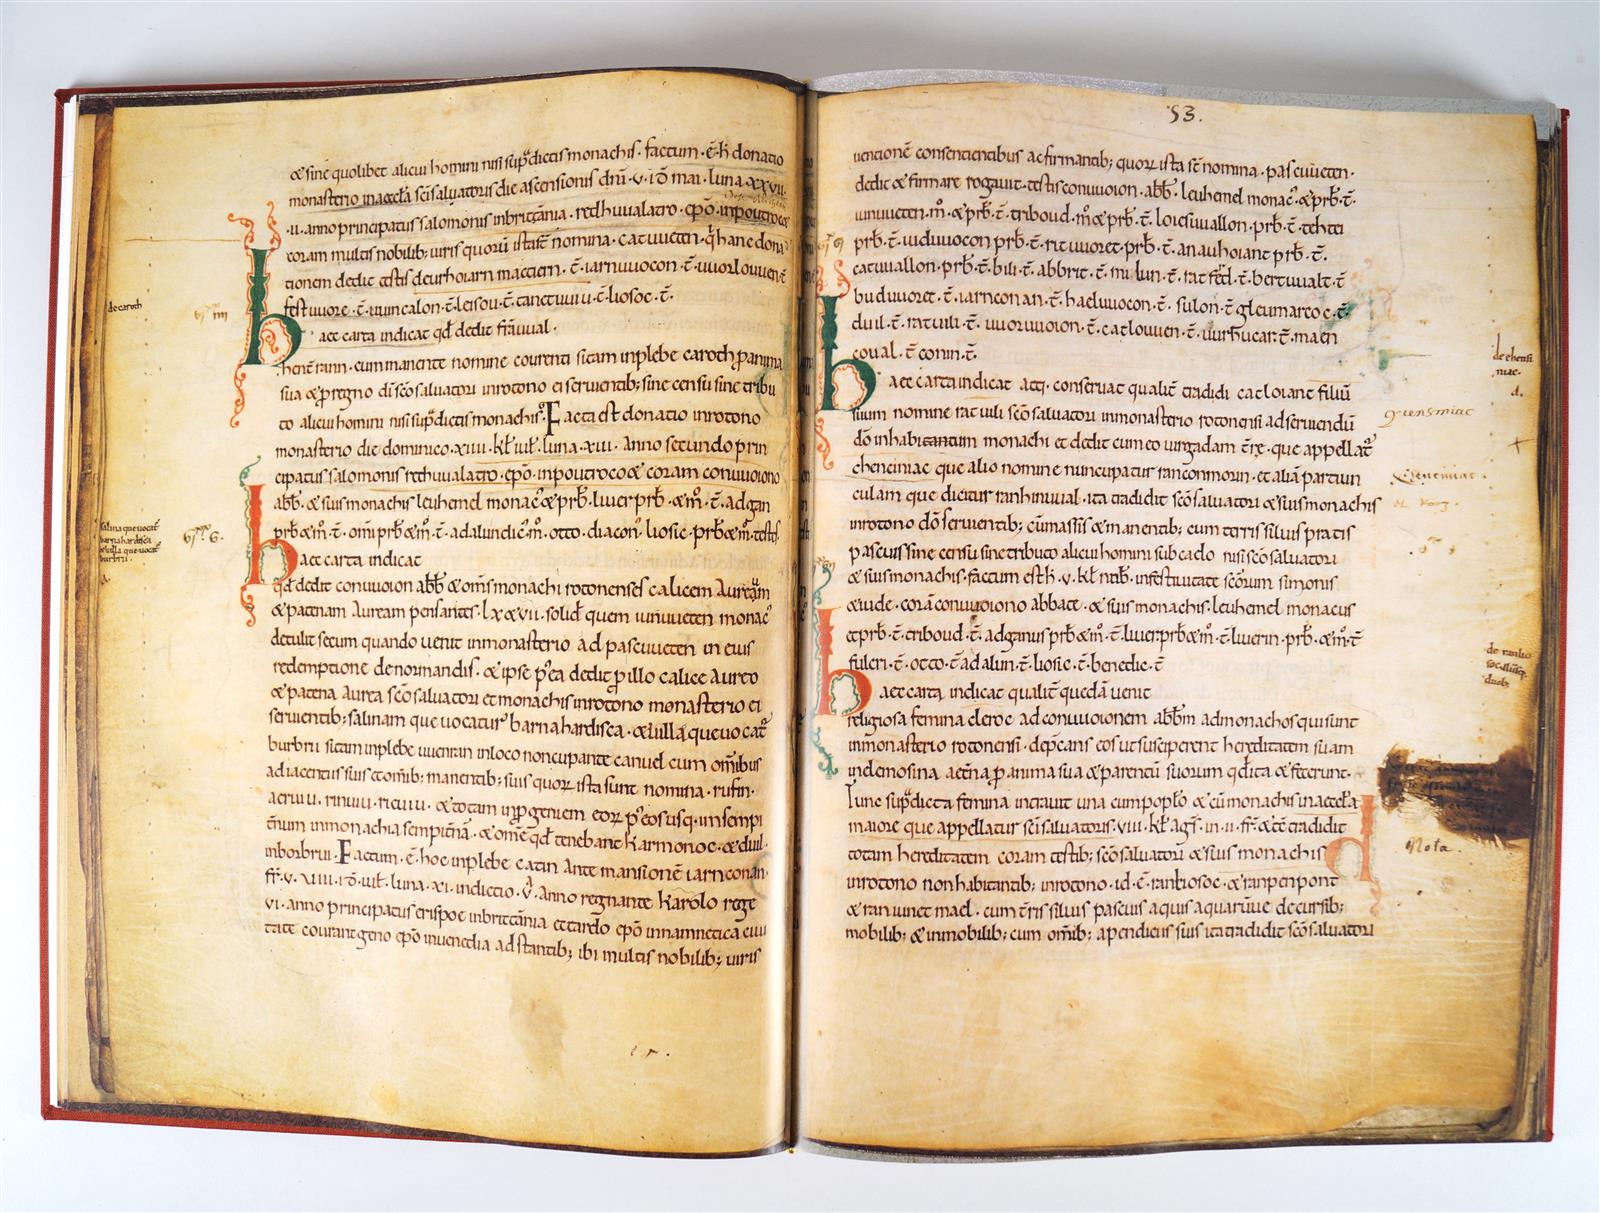 & sine quolibet alicui homini nisi sup̄dictis monachis. factum. ē. h̄ donatio
monasterio inaecclā sc̄i saluatoris die ascensionis dn̄i. v. id̄ mai. luna. xxvii.
.ii. anno principatus salomonis inbrittania. redhuualatro. ep̄o. inpoutrocoet
coram multis nobilib; uiris quorū ista st̄ nomina. catuueten. q̄ hanc dona
tionem dedit testis deurhoiarn mactiern. t̄. iarnuuocon. t̄. uuorlouuen. t̄
festuuore. t̄. uuincalon. t̄. leisou. t̄. tanetuuiu. t̄. liosoc. t̄.
haec carta indicat qd̄ dedit frāuual.
hent rann. cum manente nomine courenti sitam inplebe caroth p̱ anima
sua & p̱ regno dī sc̄o saluatori inrotono ei seruientib; sine censu sine tribu
to alicui homini nisi sup̄dictis monachis. Facta est donatio inrotono
monasterio die dominico. xiiii. kł iuł. luna. xii. anno secundo prin
cipatus salomonis rethuualatro. ep̄o. inpoutrocoet coram conuuoiono
abb̄. & suis monachis leuhemel monac̄ & prb̄. liuer prb̄. & m̄. t̄. adgan
prb̄ & m̄. t̄. omni prb̄ & m̄. t̄. adalun dic̄. m̄. otto. diacon̄. liosic. prb̄ & m̄. testes.
haec carta indicat
qd̄ dedit conuuoion abb̄ & om̄s monachi rotonenses calicem Auream
& patenam Auream pensantes. lx & vii. solid̄ quem iunuueten monac̄
detulit secum quando uenit inmonasterio ad pascuueten in eius
redemptione de normandis. & ipse p̄ea dedit p̱ illo calice Aureo
& patena Aurea sc̄o saluatori et monachis inrotono monasterio ei
seruientib; salinam que uocatur barnahardisca. & uillā que uocat̄
burbriu sitam inplebe uuenran inloco noncupante canuel cum om̄ibus
adiacentiis suis et om̄ib; manentib; suis quor̄ ista sunt nomina. rufin.
& totam .p̱geniem eor̄ p̄ eos usq. insempi
t̄num inmonachia sempit̄nā. & om̄e qd̄ tenebant karmonoc. & duil.
inborbriu. Factum. ē. hoc inplebe catin Ante mansionē iarnconan.
fr̄. v. xiiii. id̄. iuł. luna. xi. indictio. v. anno regnante Karolo rege
vi. anno principatus erispoe inbrittania et tardo ep̄o innamnetica ciui
tate courantgeno ep̄o inuenedia adstantib; ibi multis nobilib; uiris
de caroth
salina que uocat̄
barnahardisca
& uilla que uocat̄
burbriu.
53.
uentionē consentientibus ac firmantib; quor̄ ista st̄ nomina. pascuueten.
dedit & firmare rogauit. testis conuuoion. abb̄. leuhemel monac̄. & prb̄. t̄.
uinuueten. m̄. & prb̄. t̄. triboud. m̄ & prb̄. t̄. loiesuuallon. prb̄. t̄. tehtei
prb̄. t̄. uiduuocon prb̄. t̄. rituuoret. prb̄. t̄. anauhoiant prb̄. t̄.
catuuallon. prb̄. t̄. bili. t̄. abbrit. t̄. milun. t̄. ratfred. t̄. bertuualt. t̄
buduuoret. t̄. iarnconan. t̄. haeluuocon. t̄. sulon. t̄. gleumaroc. t̄.
duil. t̄. ratuili. t̄. uuoruuoion. t̄. catlouuen. t̄. uurhucar. t̄. maen
coual. t̄. conin. t̄.
haec carta indicat atq. conseruat qualit̄ tradidi catloiant filiū
suum nomine ratuili sc̄o saluatori inmonasterio rotonensi ad seruiendū
dō inhabitantum monachi et dedit cum eo uirgadam t̄re. que appellat̄
chenciniac que alio nomine nuncupatur ranconmorin. et aliā partiun
culam que dicitur ranhinuual. ita tradidit sc̄o saluatori & suis monachis
inrotono dō seruientib; cū massis & manentib; cum terris siluis pratis
pascuis sine censu sine tributo alicui homini sub caelo nisi sc̄o saluatori
& suis monachis. factum est h̄. v. kł. nb̄. infestiuitate sc̄orum simonis
& iude. corā conuuoiono abbate. & suis monachis. leuhemel monacus
et prb̄. t̄. triboud. t̄. adganus prb̄ & m̄. t̄. liuer prb̄ & m̄. t̄. liuerin. prb̄. & m̄. t̄
fuleri. t̄. otto. t̄. adalun. t̄. liosic. t̄. benedic. t̄
haec carta indicat qualit̄ quedā uenit
religiosa femina cleroc ad conuuoionem abb̄m ad monachos qui sunt
inmonasterio rotonensi. dep̱cans eos ut susciperent hereditatem suam
in elemosina aet̄na p̱ anima sua & parentū suorum qd̄ ita & fecerunt.
Tunc sup̄dicta femina intrauit una cum popłо & cū monachis inaecclā
maiore que appellatur sc̄i saluatoris. viii. kł. agt̄. in. ii. fr̄. & ēt̄ tradidit
totam hereditatem coram testib; sc̄o saluatori & suis monachis
inrotono nonhabitantib; inrotono. id. ē. ranbiosoc. & ranpenpont
& ran iunetmael. cum t̄ris siluis pascuis aquis aquarūue decursib;
mobilib; & inmobilib; cum om̄ib; apendiciis suis ita tradidit sc̄o saluatori
de chensi
niac.
Nota.